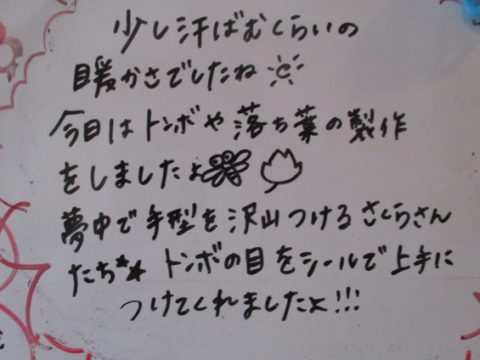 少し汗ばむくらいの
暖かさでしたね
今日はトンボや落ち葉の製作
をしましたよ
夢中で手型を沢山つけるさくらさん
たち** トンボの目をシールで上手に
つけてくれましたよ!!!